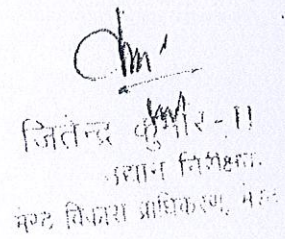 जितेन्द्र कुमार-II
उद्यान निरीक्षक
मेरठ विकास प्राधिकरण, मेरठ